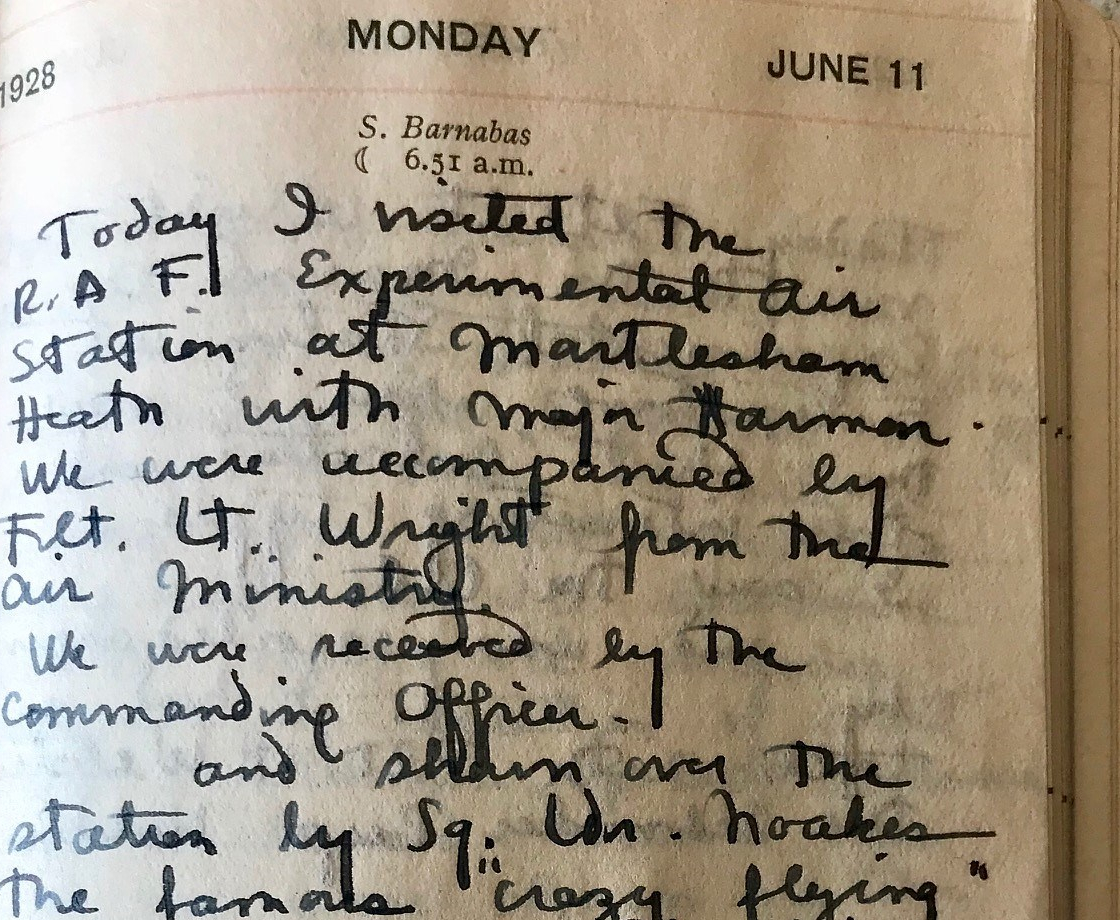 MONDAY
1928 JUNE 11
S. Barnabas
☾ 6.51 a.m.
Today I visited the
R.A.F. Experimental Air
Station at Martlesham
Heath with Major Harmon.
We were accompanied by
Flt. Lt. Wright from the
Air Ministry.
We were received by the
Commanding Officer.
and shown over the
station by Sq. Ldr. Noakes
the famous "crazy flying"